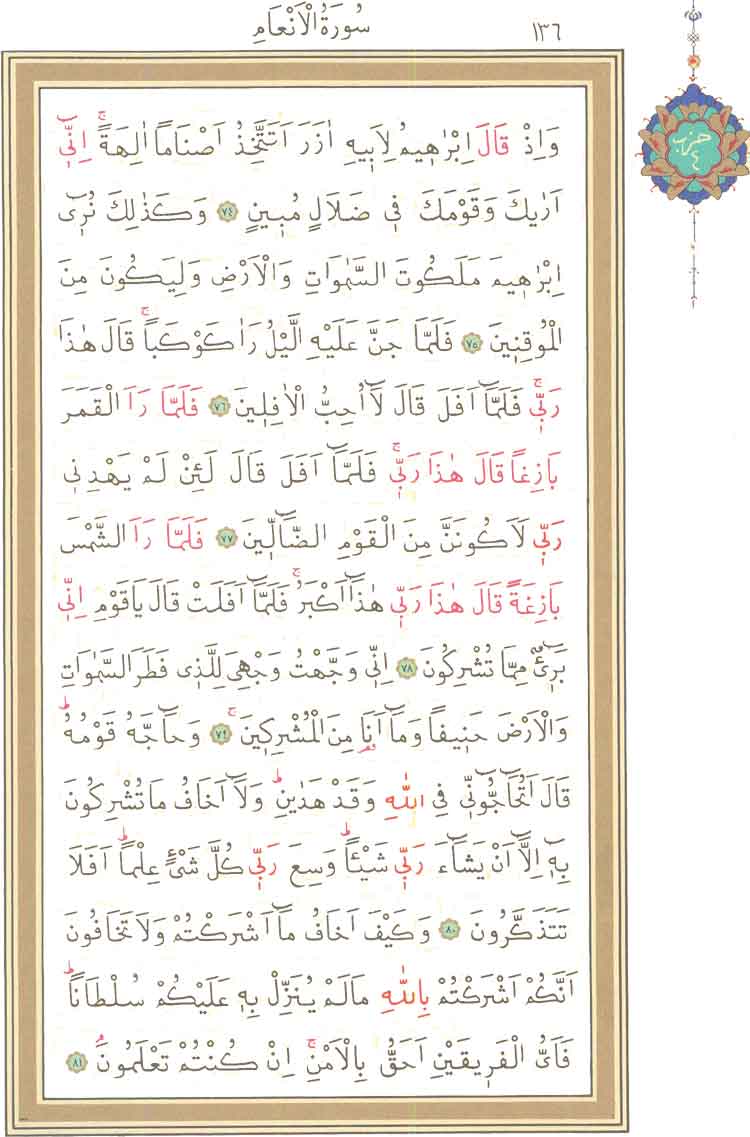 سُورَةُ الْاَنْعَامِ
١٣٦
حزب
٤
وَاِذْ قَالَ اِبْرٰه۪يمُ لِاَب۪يهِ اٰزَرَ اَتَتَّخِذُ اَصْنَاماً اٰلِهَةًۚ اِنّ۪ٓي
اَرٰيكَ وَقَوْمَكَ ف۪ي ضَلَالٍ مُب۪ينٍ ﴿٧٤﴾ وَكَذٰلِكَ نُر۪ٓي
اِبْرٰه۪يمَ مَلَكُوتَ السَّمٰوَاتِ وَالْاَرْضِ وَلِيَكُونَ مِنَ
الْمُوقِن۪ينَ ﴿٧٥﴾ فَلَمَّا جَنَّ عَلَيْهِ الَّيْلُ رَاٰ كَوْكَباًۚ قَالَ هٰذَا
رَبّ۪يۚ فَلَمَّٓا اَفَلَ قَالَ لَٓا اُحِبُّ الْاٰفِل۪ينَ ﴿٧٦﴾ فَلَمَّا رَاَ الْقَمَرَ
بَازِغاً قَالَ هٰذَا رَبّ۪يۚ فَلَمَّٓا اَفَلَ قَالَ لَئِنْ لَمْ يَهْدِن۪ي
رَبّ۪ي لَاَكُونَنَّ مِنَ الْقَوْمِ الضَّٓالّ۪ينَ ﴿٧٧﴾ فَلَمَّا رَاَ الشَّمْسَ
بَازِغَةً قَالَ هٰذَا رَبّ۪ي هٰذَٓا اَكْبَرُۚ فَلَمَّٓا اَفَلَتْ قَالَ يَاقَوْمِ اِنّ۪ي
بَر۪ٓيءٌ مِمَّا تُشْرِكُونَ ﴿٧٨﴾ اِنّ۪ي وَجَّهْتُ وَجْهِيَ لِلَّذ۪ي فَطَرَ السَّمٰوَاتِ
وَالْاَرْضَ حَن۪يفاً وَمَٓا اَنَا۬ مِنَ الْمُشْرِك۪ينَۚ ﴿٧٩﴾ وَحَٓاجَّهُ قَوْمُهُۜ
قَالَ اَتُحَٓاجُّٓونّ۪ي فِي اللّٰهِ وَقَدْ هَدٰينِۜ وَلَٓا اَخَافُ مَا تُشْرِكُونَ
بِه۪ٓ اِلَّٓا اَنْ يَشَٓاءَ رَبّ۪ي شَيْـٔاًۜ وَسِعَ رَبّ۪ي كُلَّ شَيْءٍ عِلْماًۜ اَفَلَا
تَتَذَكَّرُونَ ﴿٨٠﴾ وَكَيْفَ اَخَافُ مَٓا اَشْرَكْتُمْ وَلَا تَخَافُونَ
اَنَّكُمْ اَشْرَكْتُمْ بِاللّٰهِ مَا لَمْ يُنَزِّلْ بِه۪ عَلَيْكُمْ سُلْطَاناًۜ
فَاَيُّ الْفَر۪يقَيْنِ اَحَقُّ بِالْاَمْنِۚ اِنْ كُنْتُمْ تَعْلَمُونَۢ ﴿٨١﴾